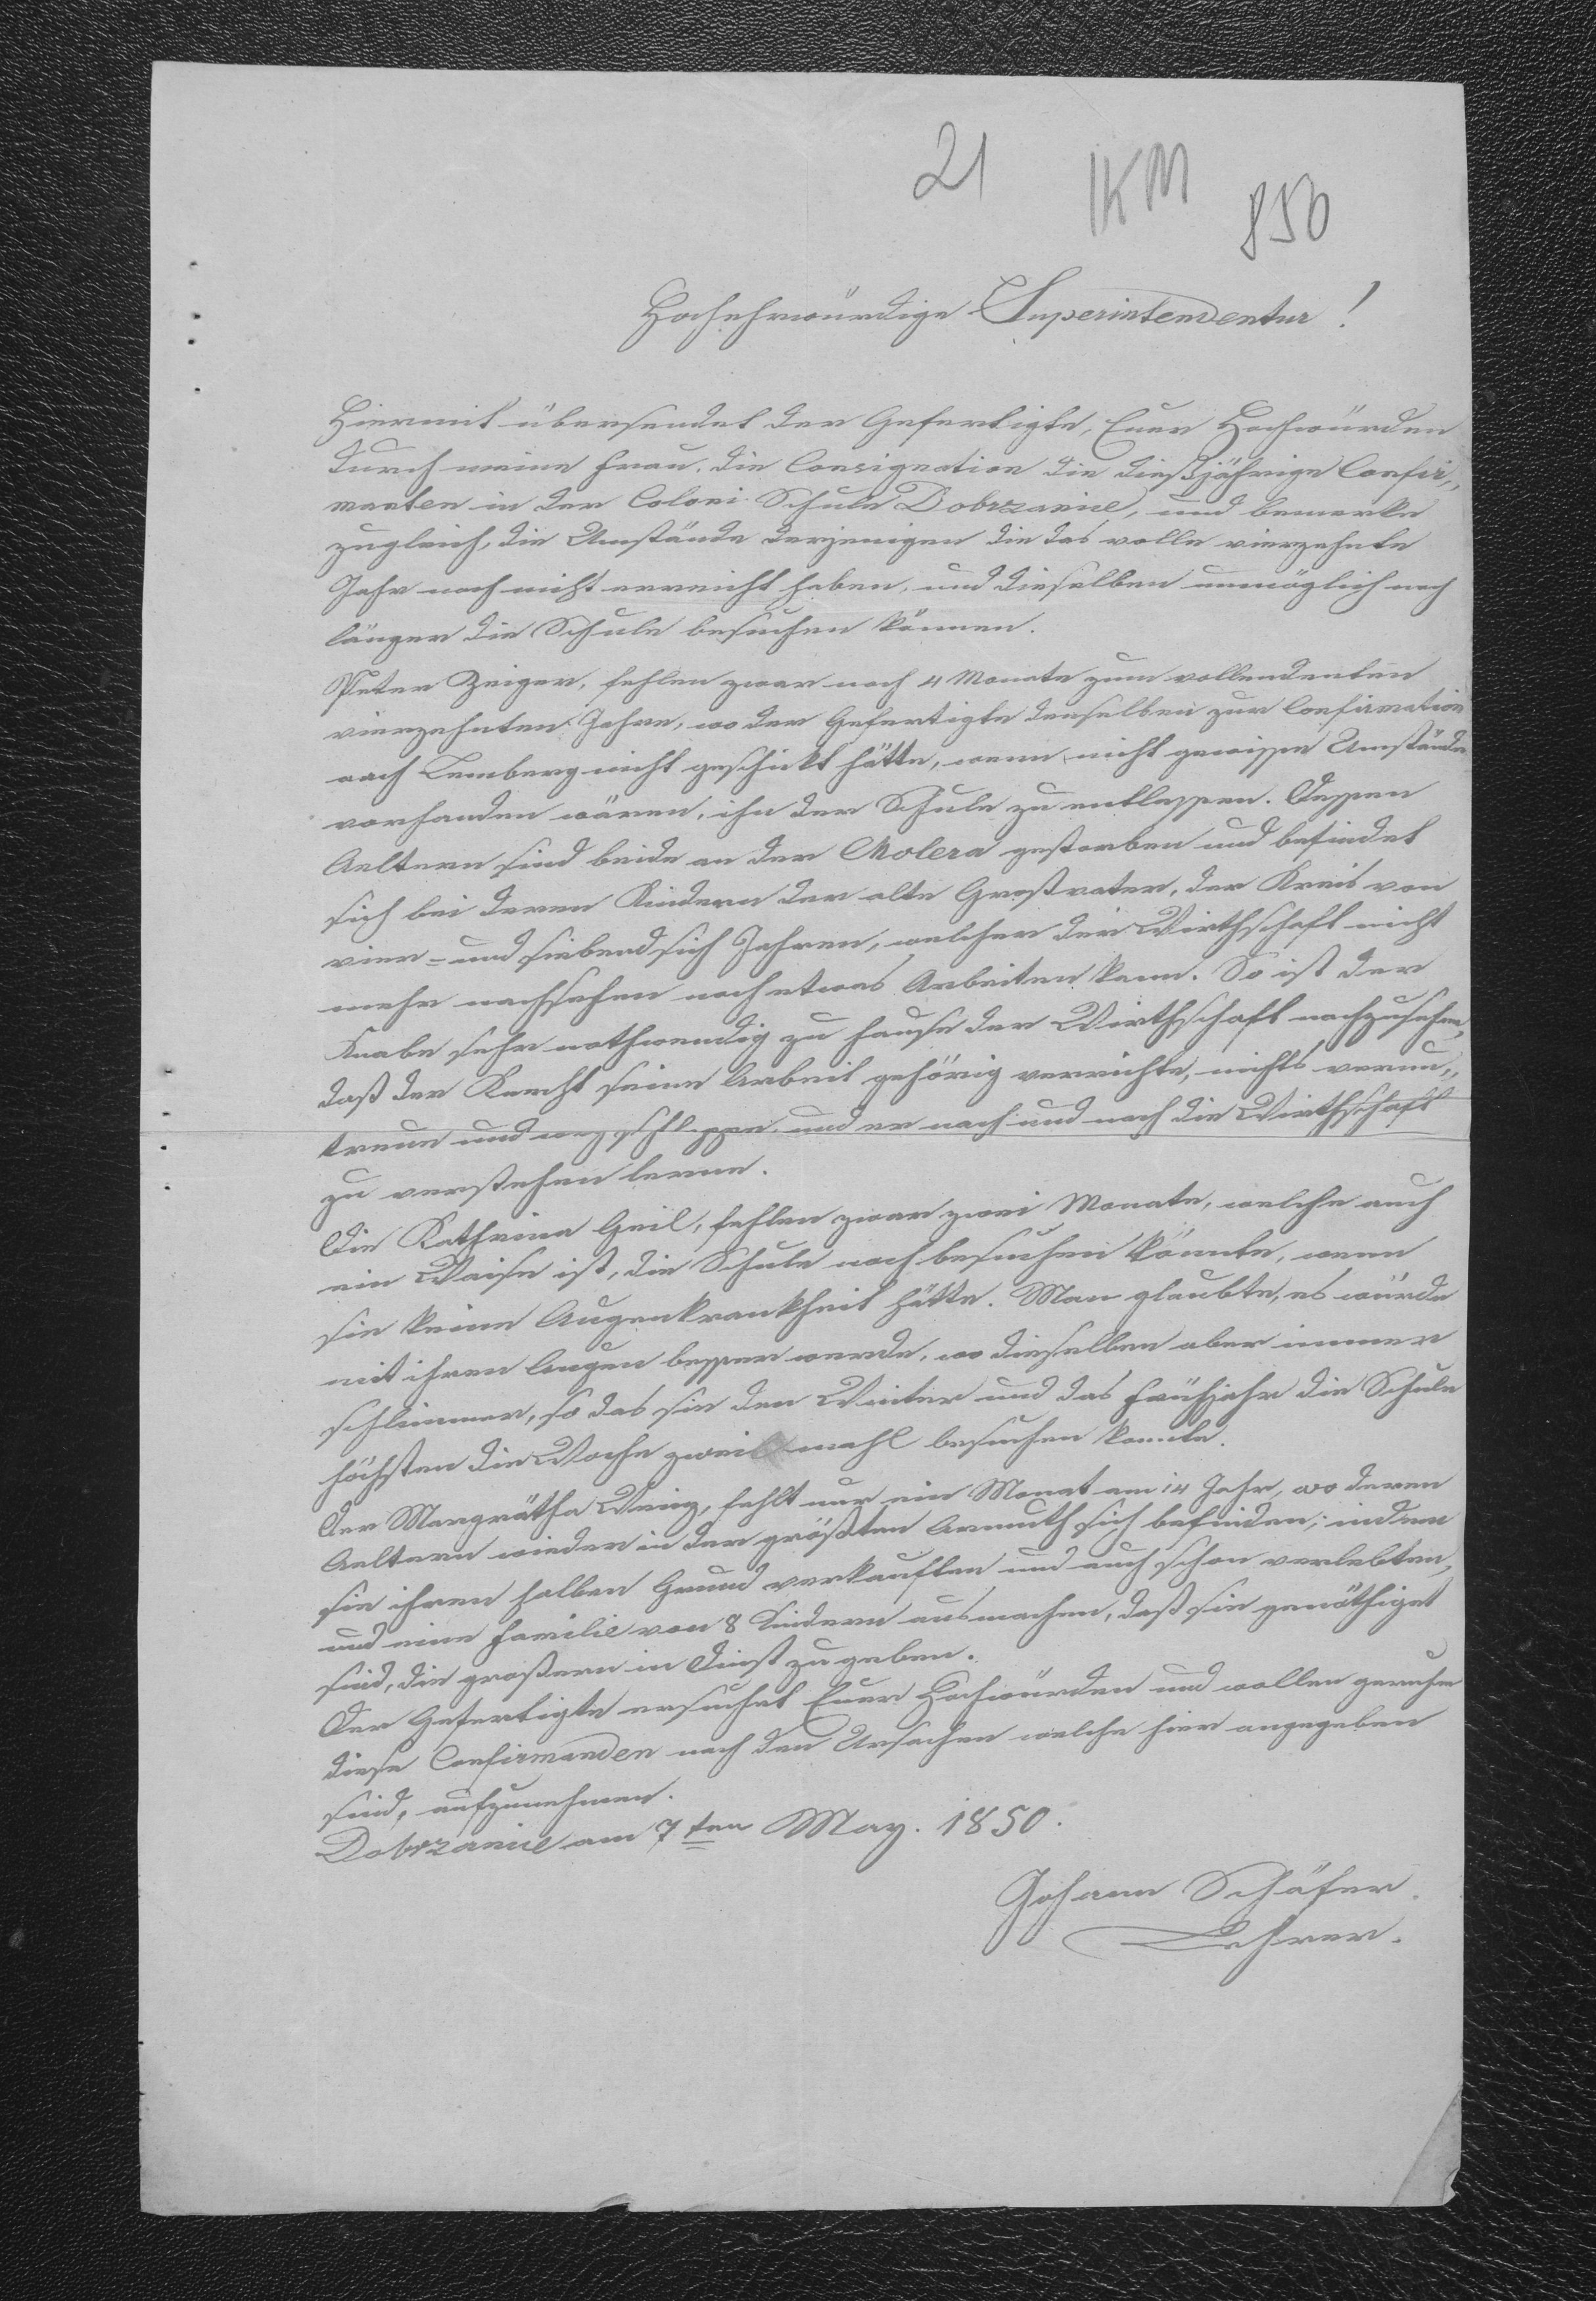 21 KM 850
Hochehrwürdige Superintendentur!
Hiermit übersendet der Gefertigte, Euer Hochwürden
durch meine Frau, die Consignation die dießjährige Confir„
manten in der Coloni Schule Dobrzanice, und bemerke
zugleich, die Umstände derjenigen die das volle vierzehnte
Jahr noch nicht erreicht haben, und dieselben unmöglich noch
länger die Schule besuchen können.
Peter Zeiger, fehlen zwar noch 4 Monate zum vollendenten
vierzehnten Jahre, wo der Gefertigte denselben zur Confirmation
nach Lemberg nicht geschickt hätte, wenn nicht gewisse Umstände
vorhanden wären, ihn der Schule zu entlassen. Dessen
Aeltern sind beide an der Cholera gestorben und befindet
sich bei deren Kindern der alte Großvater, der Kreis von
vier- und siebendsich Jahren, welcher der Wirthschaft nicht
mehr nachsehen noch etwas Arbeiten kann. So ist der
Knabe sehr nothwendig zu Hause der Wirthschaft nachzusehen,
daß der Knecht seine Arbeit gehörig verrichte, nichts verun„
treue und wegschleppe, und er nach und nach die Wirthschaft
zu verstehen lerne.
Die Kathrina Geil, fehlen zwar zwei Monate, welche auch
ein Waise ist, die Schule noch besuchen könnte, wenn
sie keine Augenkrankheit hätte. Man glaubte, es würde
mit ihren Augen besser werde, wo dieselben aber immer
schlimmer, so das sie den Winter und das Frühjahr die Schule
höchsten die Woche zwei mahl besuchen konnte.
Der Margrätha Weiz, fehlt nur ein Monat am 14 Jahr, wo deren
Aeltern wieder in der größten Armuth sich befinden; indem
sie ihren halben Grund verkauften und auch schon verlebten,
und eine Familie von 8 Kindern ausmachen, daß sie genöthiget
sind, die großern in Dienst zu geben.
Der Gefertigte ersuchet Euer Hochwürden und wollen geruhen
diese Confirmanden nach den Ursachen welche hier angegeben
sind, aufzunehmen.
Dobrzanice am 7ten May. 1850.
Johann Schäfer.
Lehrer.